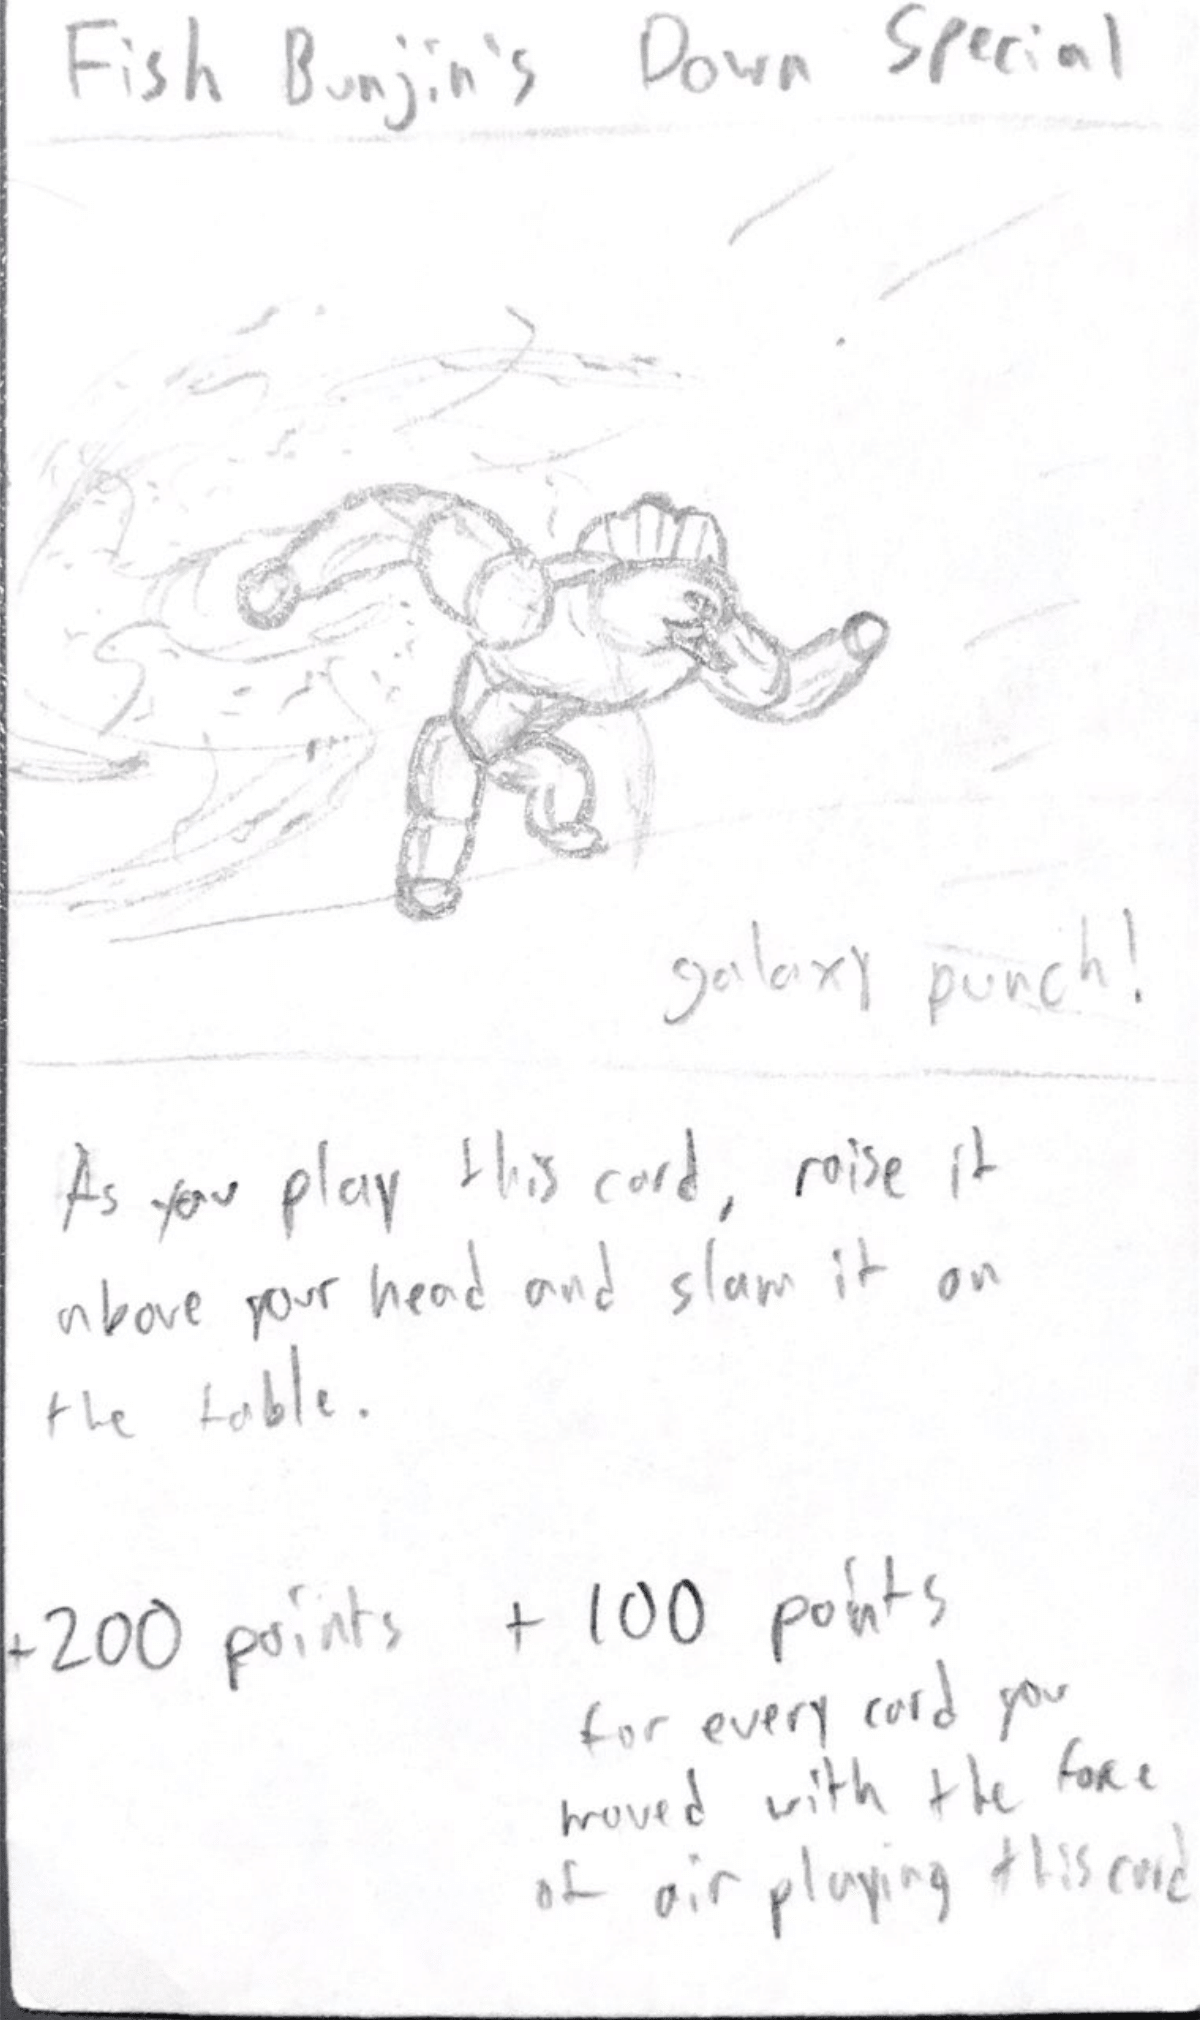 Fish Bunjin's Down Special
galaxy punch!
As you play this card, raise it
above your head and slam it on
the table.
+200 points + 100 points
for every card you
moved with the force
of air playing this card